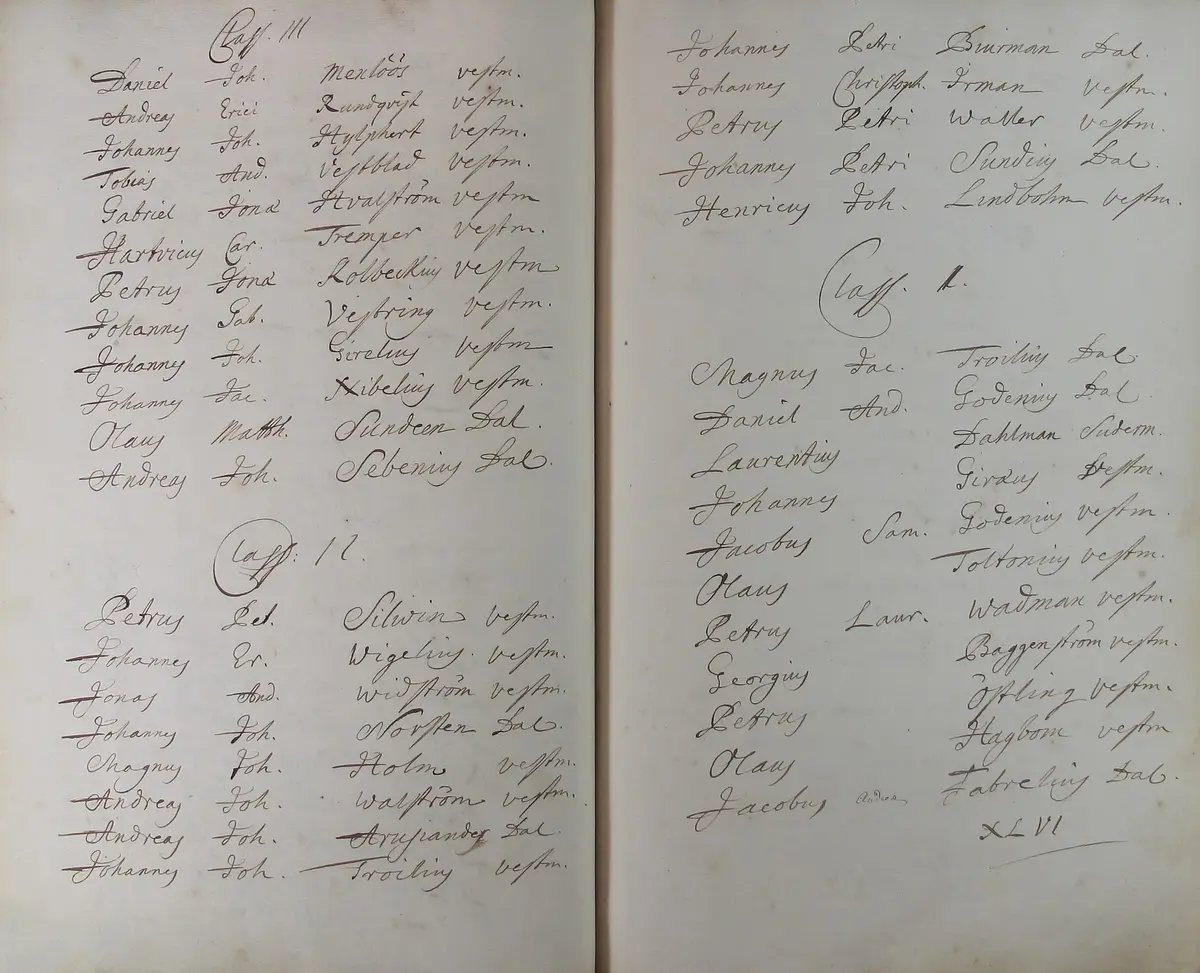 Class. III
Daniel Joh. Menlöös vestm.
Andreas Erici Rundqvist vestm.
Johannes Joh. Hylphert vestm.
Tobias And. Vestblad vestm.
Gabriel Jonæ Hvalström vestm
Hartvicus Car. Tremper vestm.
Petrus Jonæ Rolbeckius vestm
Johannes Gab. Vestring vestm.
Johannes Joh. Girelius vestm
Johannes Jac. Nibelius vestm.
Olaus Matth. Sundeen Dal.
Andreas Joh. Sebenius Dal.
Class: II.
Petrus Pet. Silwin vestm.
Johannes Er. Wigelius. vestm.
Jonas And. Widström vestm.
Johannes Joh. Norsten Dal.
Magnus Joh. Holm vestm.
Andreas Joh. Walström vestm.
Andreas Joh. Arusiander Dal.
Johannes Joh. Troilius vestm.
Johannes Petri Biurman Dal.
Johannes Christoph. Irman vestm.
Petrus Petri Waller vestm.
Johannes Petri Sundius Dal.
Henricus Joh. Lindbohm vestm.
Class. I.
Magnus Jac. Troilius Dal.
Daniel And. Godenius Dal.
Laurentius Dahlman Suderm.
Johannes Giræus Vestm.
Jacobus Sam. Godenius vestm.
Olaus Toltonius vestm.
Petrus Laur. Wadman vestm.
Georgius Baggenström vestm.
Petrus Östling vestm.
Olaus Hagbom vestm
Jacobus Andreæ Fabrelius Dal.
XLVI